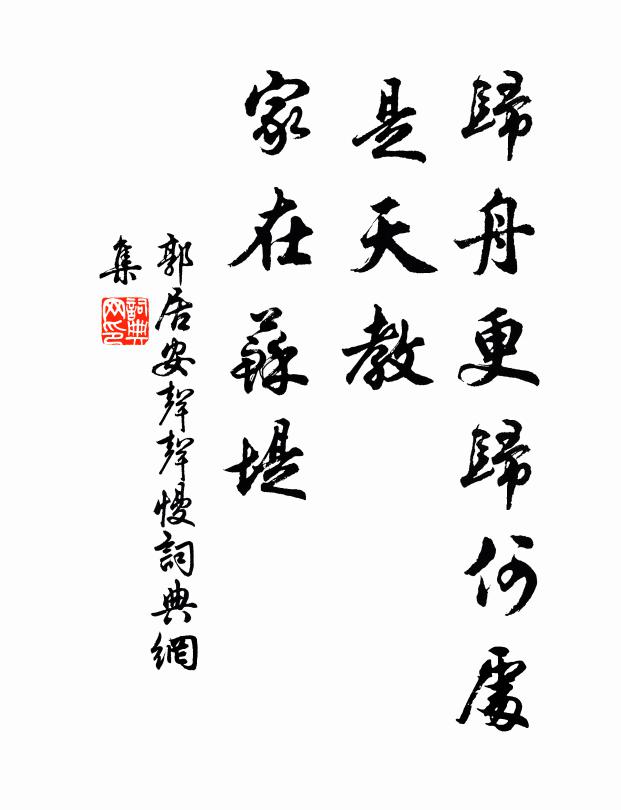 歸舟更歸何處
是天教
家在蘇堤
郭居安聲聲慢詞典網
集
詞典網印